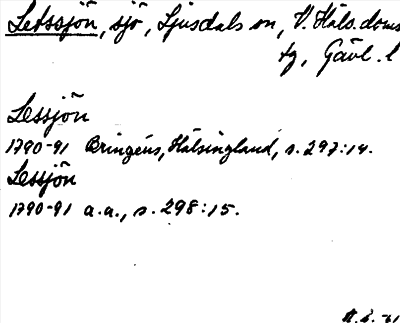 Letssjön, sjö, Ljusdals sn, V. Häls. doms
tg, Gävl. l
Lessjön
1790-91 Bringéus, Hälsingland, s. 297:14.
Lessjön
1790-91 a.a., s. 298:15.